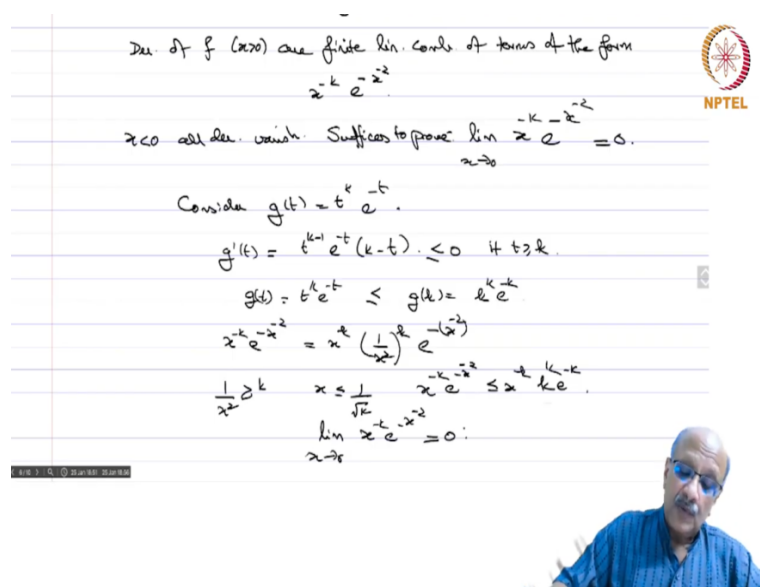 Der. of f (x>0) are finite lin. comb. of terms of the form
x^{-k} e^{-x^{-2}}.
x<0 all der. vanish. Suffices to prove lim_{x→0} x^{-k} e^{-x^{-2}} = 0.
Consider g(t) = t^k e^{-t}.
g'(t) = t^{k-1} e^{-t} (k-t). ≤ 0 if t≥k.
g(t) = t^k e^{-t} ≤ g(k) = k^k e^{-k}
x^{-k} e^{-x^{-2}} = x^k (1/x^2)^k e^{-(x^{-2})}
1/x^2 ≥ k x ≤ 1/√k x^{-k} e^{-x^{-2}} ≤ x^k k^k e^{-k}.
lim_{x→0} x^{-k} e^{-x^{-2}} = 0.
NPTEL